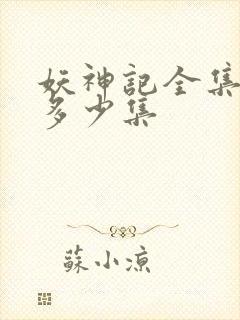 妖神記全集
多少集
蘇小涼